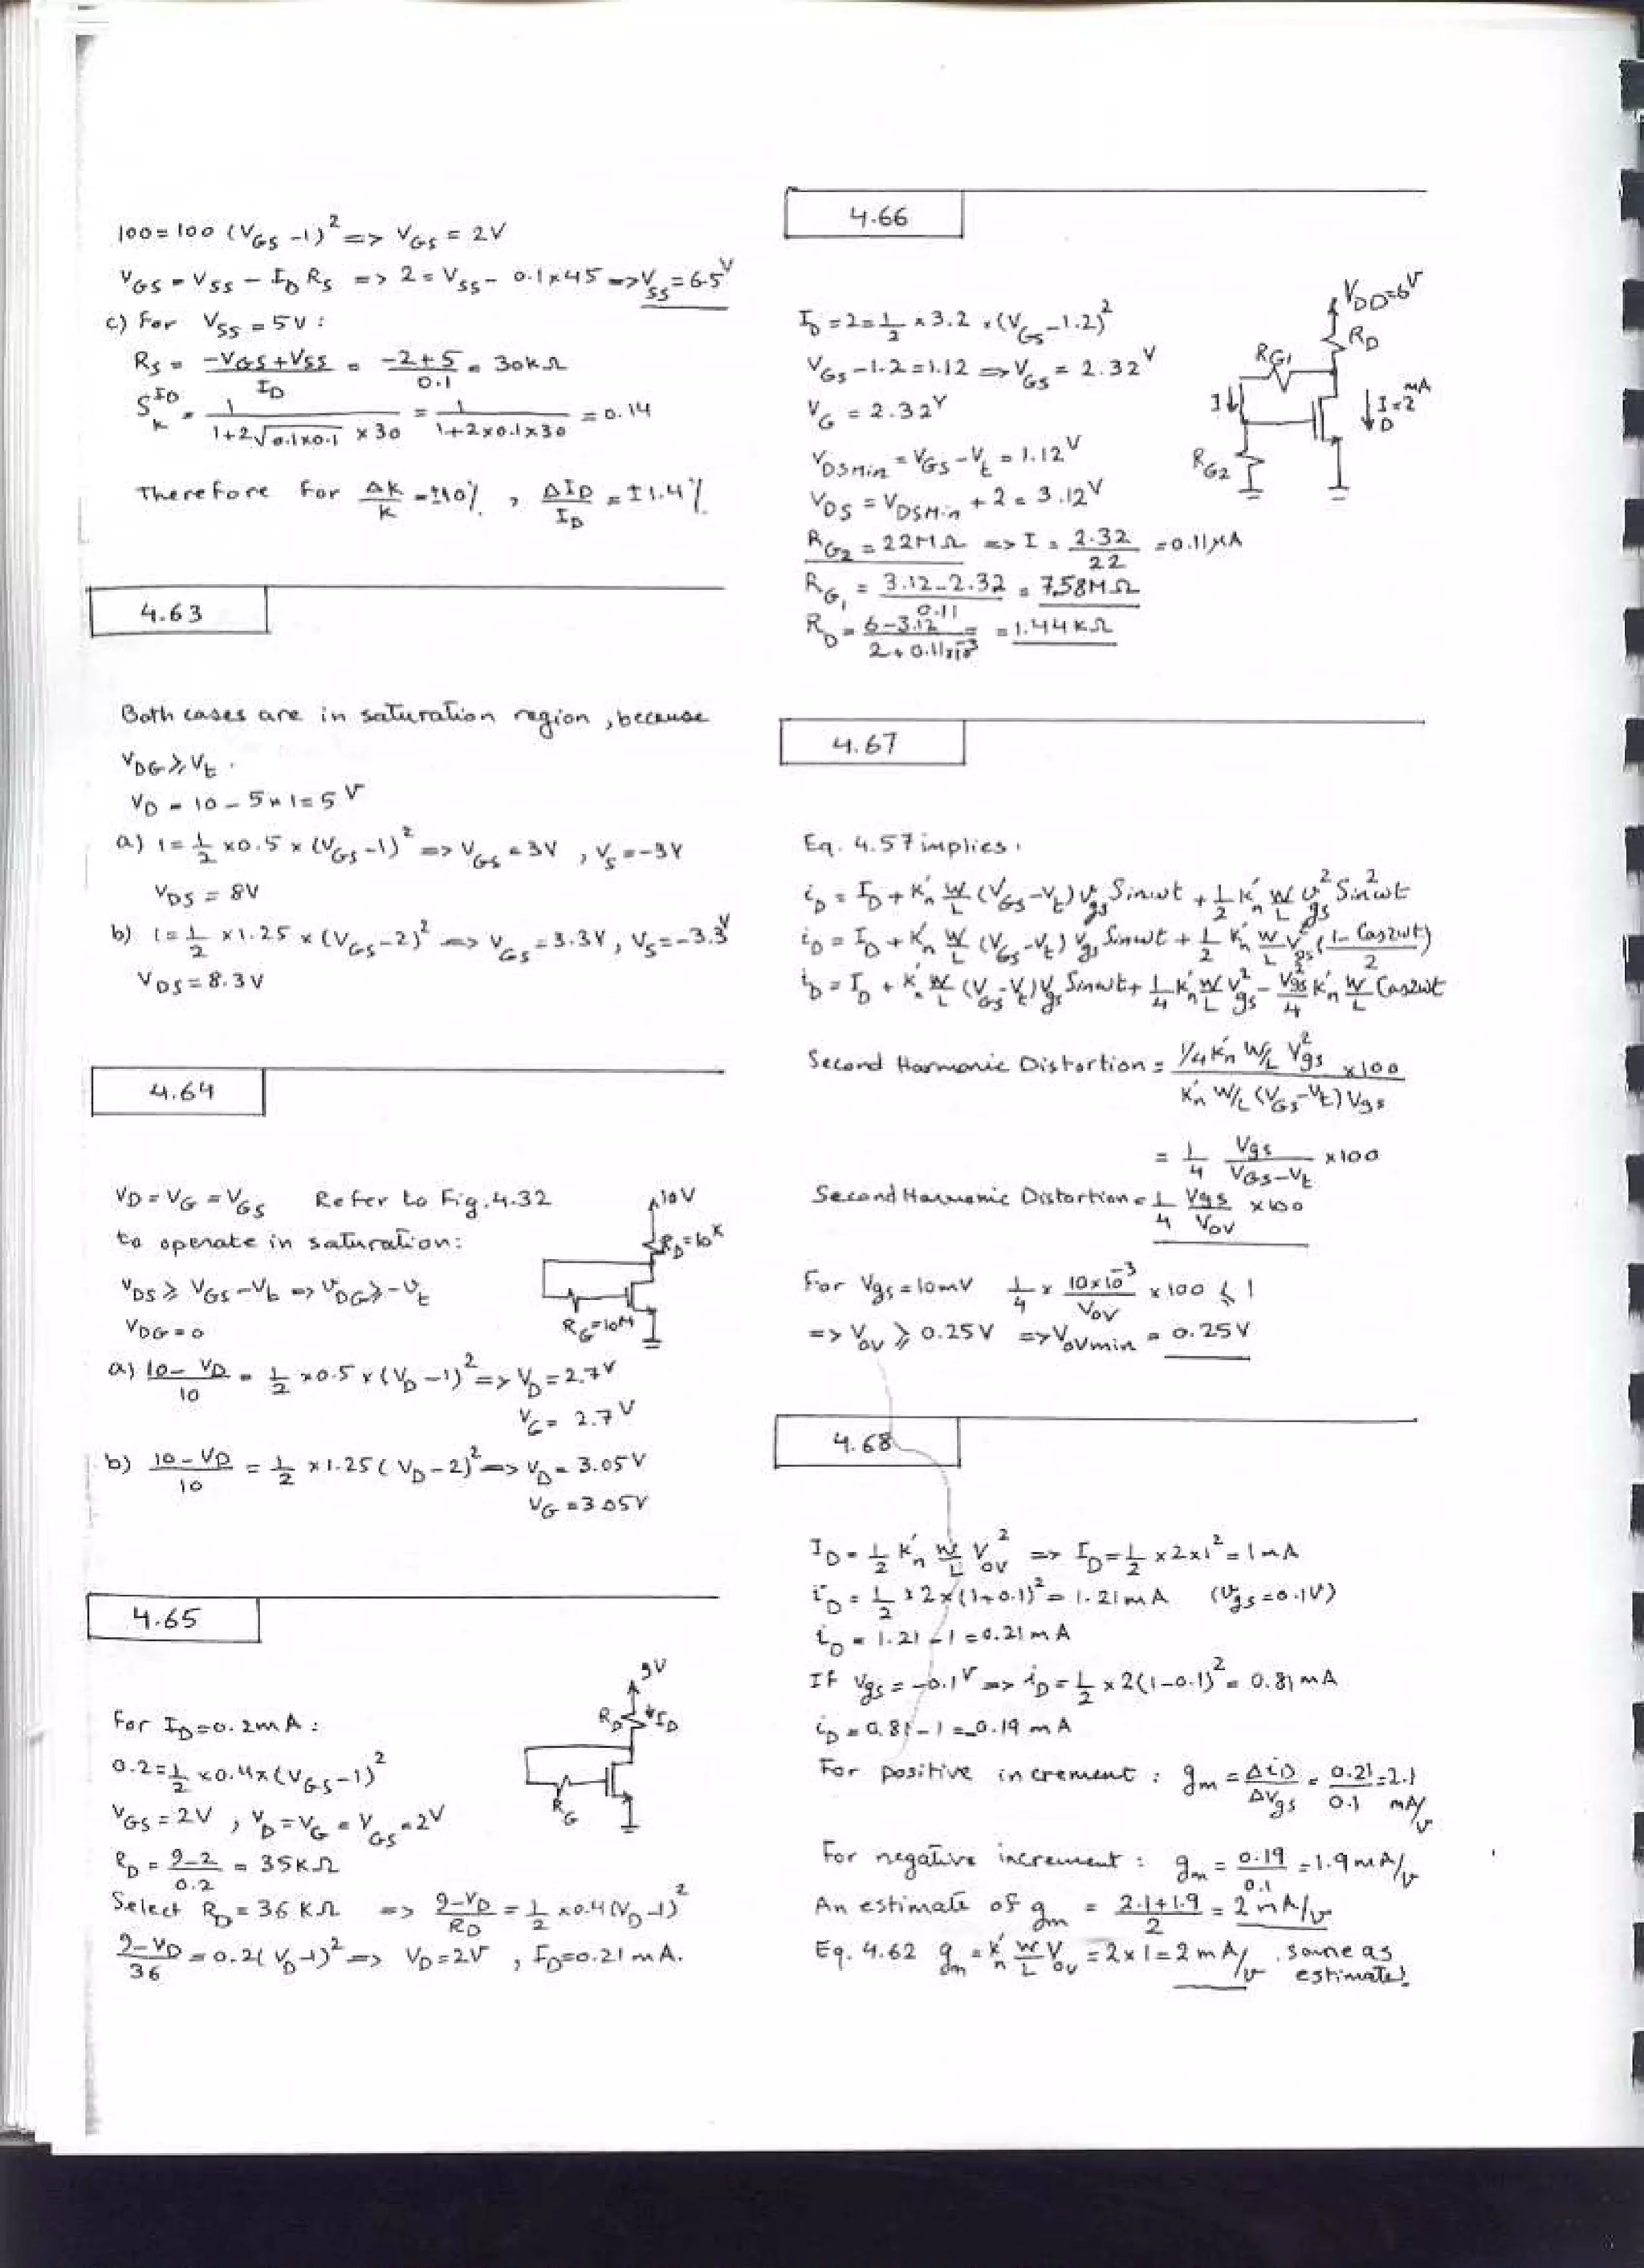 100 = 100 (V_GS - 1)² => V_GS = 2V
V_GS = V_SS - I_D R_S => 2 = V_SS - 0.1×45 => V_SS = 6.5V
c) For V_SS = 5V :
R_S = (-V_GS + V_SS)/I_D = (-2+5)/0.1 = 30kΩ
S_K^ID = 1/(1+2√(0.1×0.1) × 30) = 1/(1+2×0.1×30) = 0.14
Therefore For ΔK/K = ±10% , ΔI_D/I_D = ±1.4%
4.63
Both cases are in saturation region, because
V_DG ≥ V_t .
V_D = 10 - 5×1 = 5V
a) 1 = 1/2 × 0.5 × (V_GS - 1)² => V_GS = 3V , V_S = -3V
V_DS = 8V
b) 1 = 1/2 × 1.25 × (V_GS - 2)² => V_GS = 3.3V , V_S = -3.3V
V_DS = 8.3V
4.64
V_D = V_G = V_GS Refer to Fig. 4.32
to operate in saturation:
V_DS ≥ V_GS - V_t => V_DG ≥ -V_t
V_DG = 0
10V
R_D = 10K
R_G = 10M
a) (10 - V_D)/10 = 1/2 × 0.5 × (V_D - 1)² => V_D = 2.7V
V_G = 2.7V
b) (10 - V_D)/10 = 1/2 × 1.25 (V_D - 2)² => V_D = 3.05V
V_G = 3.05V
4.65
For I_D = 0.2mA :
0.2 = 1/2 × 0.4 × (V_GS - 1)²
V_GS = 2V , V_D = V_G = V_GS = 2V
R_D = (9-2)/0.2 = 35KΩ
9V
R_D I_D
R_G
Select R_D = 36 KΩ => (9-V_D)/R_D = 1/2 × 0.4 (V_D - 1)²
(9-V_D)/36 = 0.2 (V_D - 1)² => V_D = 2V , I_D = 0.21 mA.
4.66
I_D = 2 = 1/2 × 3.2 × (V_GS - 1.2)²
V_GS - 1.2 = 1.12 => V_GS = 2.32V
V_G = 2.32V
V_DSMin = V_GS - V_t = 1.12V
V_DS = V_DSMin + 2 = 3.12V
R_G2 = 22MΩ => I = 2.32/22 = 0.11μA
R_G1 = (3.12 - 2.32)/0.11 = 7.58MΩ
R_D = (6 - 3.12)/(2 + 0.11×10⁻³) = = 1.44KΩ
V_DD = 6V
R_D
R_G1
I
I_D = 2 mA
R_G2
4.67
Eq. 4.57 implies:
i_D = I_D + K'_n W/L (V_GS - V_t) v_gs Sinωt + 1/2 K'_n W/L v²_gs Sin²ωt
i_D = I_D + K'_n W/L (V_GS - V_t) V_gs Sinωt + 1/2 K'_n W/L V²_gs ((1 - Cos2ωt)/2)
i_D = I_D + K'_n W/L (V_GS - V_t) V_gs Sinωt + 1/4 K'_n W/L V²_gs - V²gs/4 K'_n W/L Cos2ωt
Second Harmonic Distortion = (1/4 K'_n W/L V²_gs)/(K'_n W/L (V_GS - V_t) V_gs) ×100
= 1/4 V_gs/(V_GS - V_t) ×100
Second Harmonic Distortion = 1/4 V_gs/V_OV ×100
For V_gs = 10mV 1/4 × 10×10⁻³/V_OV × 100 ≤ 1
=> V_OV ≥ 0.25V => V_OVmin = 0.25V
4.68
I_D = 1/2 K'_n W/L V²_OV => I_D = 1/2 × 2 × 1² = 1mA
i_D = 1/2 × 2 × (1 + 0.1)² = 1.21mA (v_gs = 0.1V)
i_D = 1.21 - 1 = 0.21 mA
If v_gs = -0.1V => i_D = 1/2 × 2 (1 - 0.1)² = 0.81 mA
i_D = 0.81 - 1 = -0.19 mA
For positive increment : g_m = Δi_D/ΔV_gs = 0.21/0.1 = 2.1 mA/V
For negative increment : g_m = 0.19/0.1 = 1.9 mA/V
An estimate of g_m = (2.1+1.9)/2 = 2 mA/V
Eq. 4.62 g_m = K'_n W/L V_OV = 2 × 1 = 2 mA/V . same as
estimate!